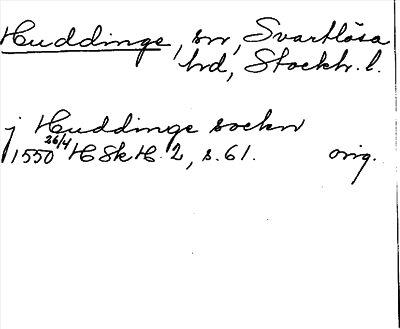 Huddinge, sn, Svartlösa
hd, Stockh. l.
j Huddinge sockn
1550 26/4 HSkH. 2, s. 61. orig.